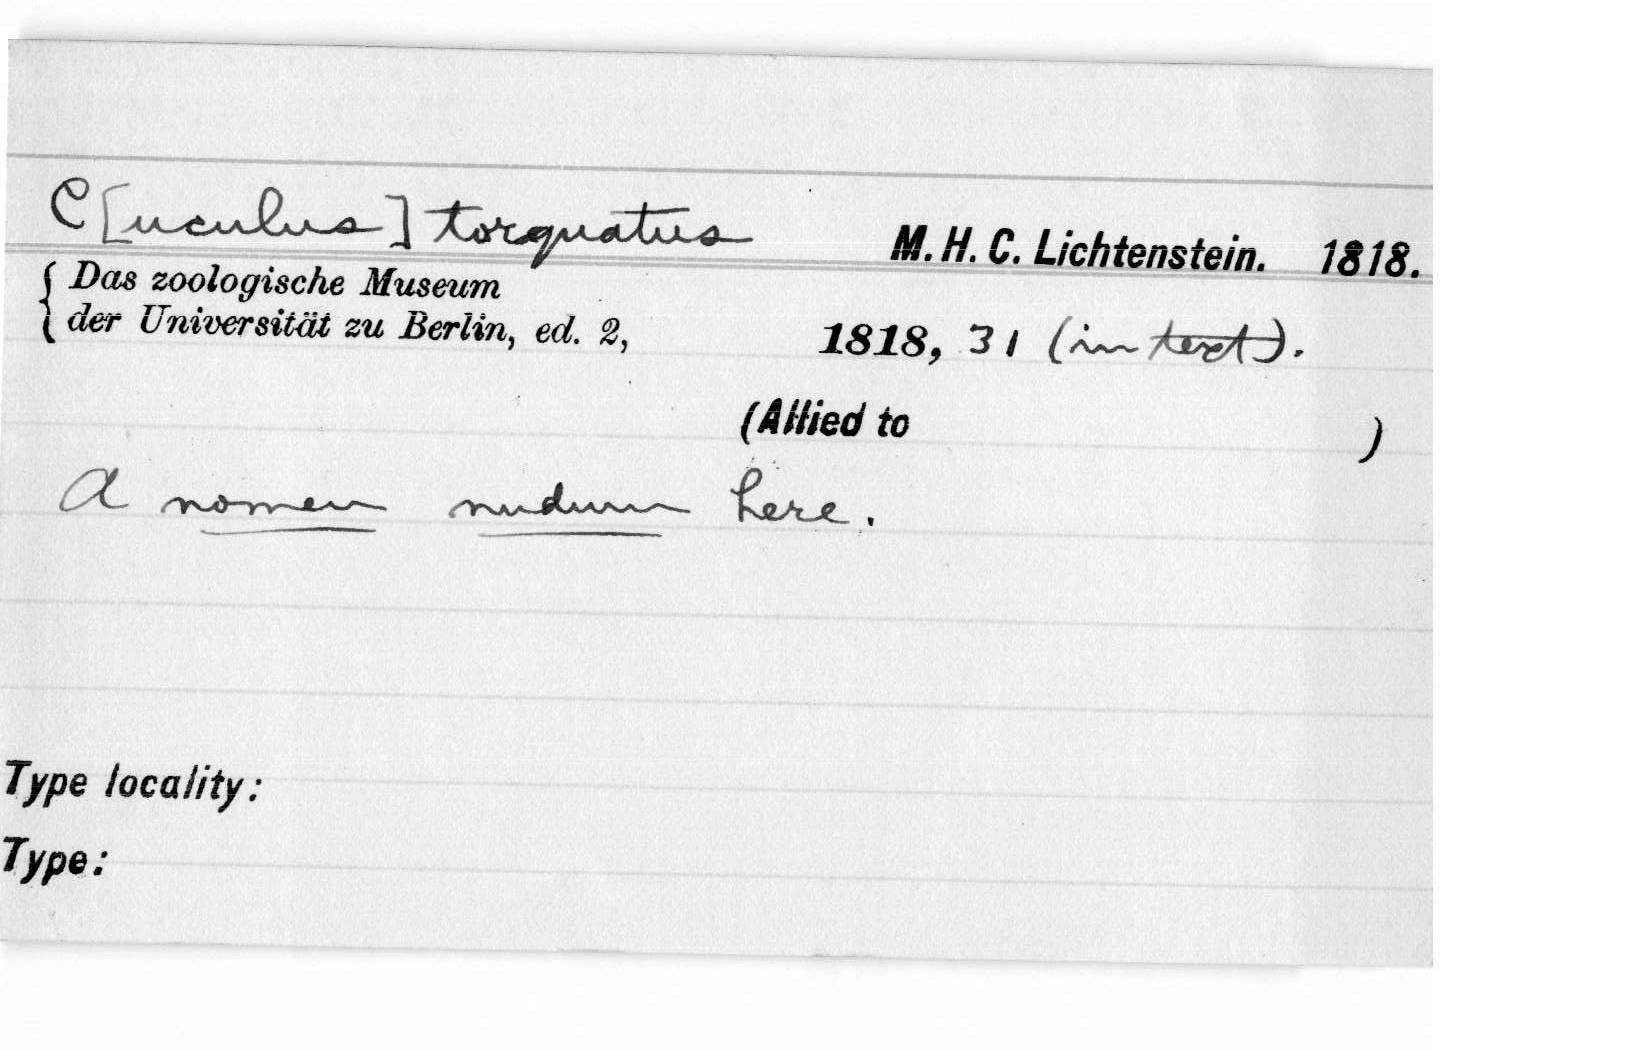 C[uculus] torquatus M. H. C. Lichtenstein. 1818.
{ Das zoologische Museum
der Universität zu Berlin, ed. 2, 1818, 31 (in text).
(Allied to )
A nomen nudum here.
Type locality:
Type: